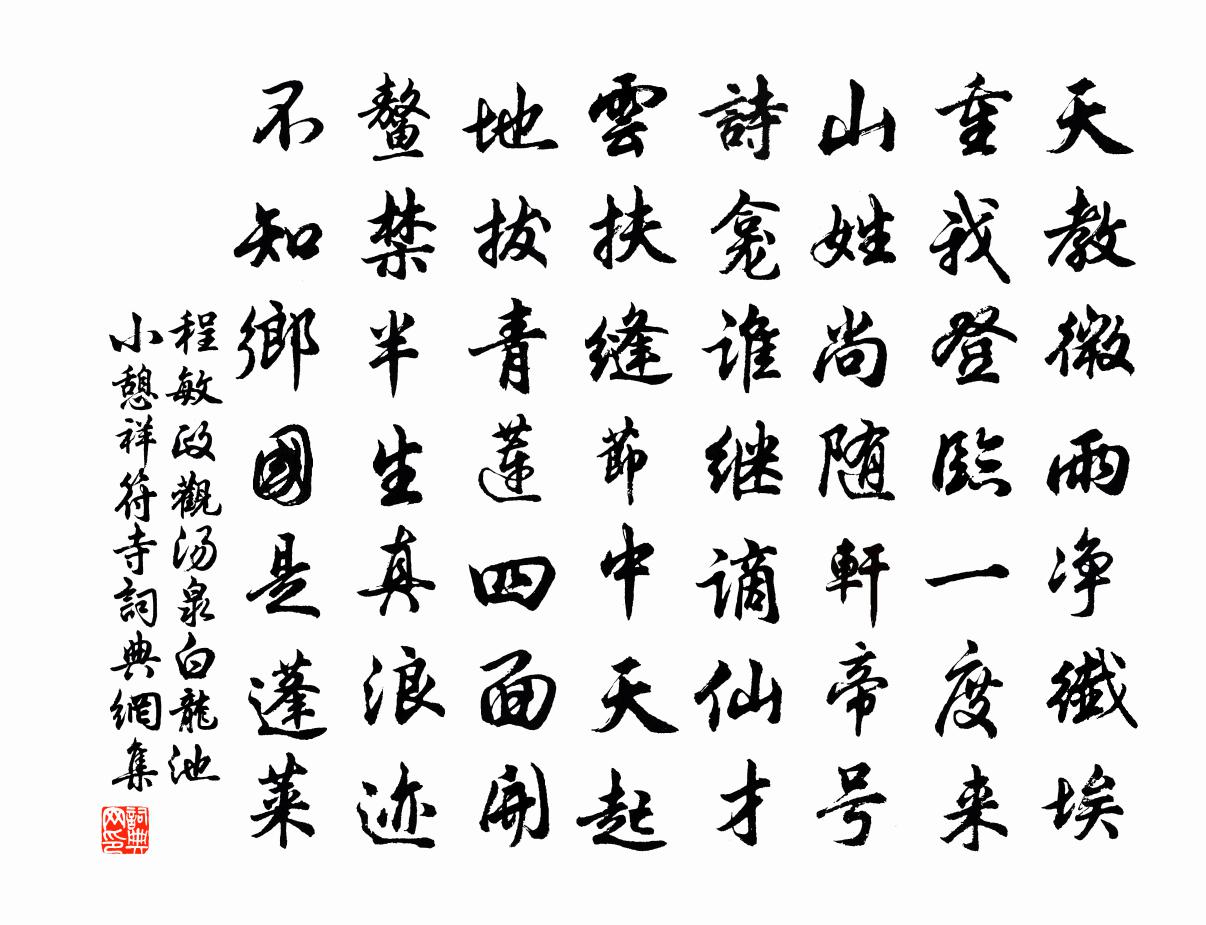 天教微雨净纖埃
重我登臨一度来
山姓尚随軒帝号
詩龛谁继谪仙才
雲扶缝節中天起
地拔青蓮四面開
鳌禁半生真浪迹
不知鄉國是蓬莱
程敏政觀汤泉白龍池
小憩祥符寺詞典網集
詞典网印